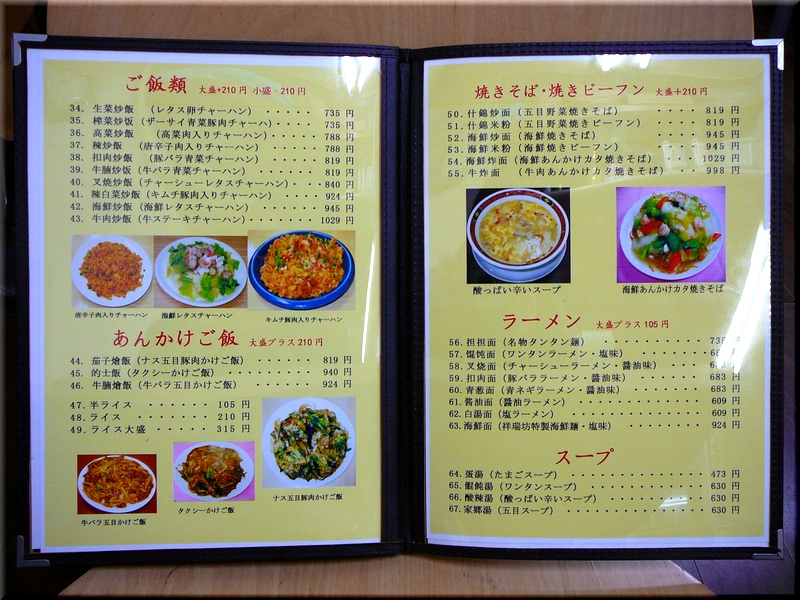 ご飯類 大盛+210円 小盛-210円
34. 生菜炒飯 (レタス卵チャーハン) ・・・・・ 735 円
35. 榨菜炒饭 (ザーサイ青菜豚肉チャーハ) ・・・・ 735 円
36. 高菜炒飯 (高菜肉入りチャーハン)・・・・・ 788 円
37. 辣炒飯 (唐辛子肉入りチャーハン) 788 円
38. 扣肉炒飯 (豚バラ青菜チャーハン) ・・・・・ 819 円
39. 牛腩炒飯 (牛バラ青菜チャーハン) ・・・・・ 819 円
40. 叉焼炒飯 (チャーシューレタスチャーハン)・・・840 円
41. 辣白菜炒飯 (キムチ豚肉入りチャーハン)・・・・ 924 円
42. 海鮮炒飯 (海鮮レタスチャーハン) ・・・・・・ 945 円
43. 牛肉炒飯 (牛ステーキチャーハン)・・・・・・ 1029 円
唐辛子肉入りチャーハン 海鮮レタスチャーハン キムチ豚肉入りチャーハン
あんかけご飯 大盛プラス 210 円
44. 茄子燴飯 (ナス五目豚肉かけご飯) ・・・・・・ 819 円
45. 的士飯 (タクシーかけご飯) ・・・・・・ 940 円
46. 牛腩燴飯 (牛バラ五目かけご飯) ・・・・・・ 924 円
47. 半ライス ・・・・・・・ 105 円
48. ライス ・・・・・・・ 210 円
49. ライス大盛 ・・・・・・ 315 円
牛バラ五目かけご飯 タクシーかけご飯 ナス五目豚肉かけご飯
焼きそば・焼きビーフン 大盛+210 円
50. 什錦炒面 (五目野菜焼きそば) ・・・・・・ 819 円
51. 什錦米粉 (五目野菜焼きビーフン) ・・・・ 819 円
52. 海鮮炒面 (海鮮焼きそば) ・・・・・・・ 945 円
53. 海鮮米粉 (海鮮焼きビーフン) ・・・・・・ 945 円
54. 海鮮炸面 (海鮮あんかけカタ焼きそば) ・・・ 1029 円
55. 牛炸面 (牛肉あんかけカタ焼きそば) ・・ 998 円
酸っぱい辛いスープ 海鮮あんかけカタ焼きそば
ラーメン 大盛プラス 105 円
56. 担担面 (名物タンタン麺) ・・・・・・・・・ 735
57. 馄饨面 (ワンタンラーメン・塩味) ・・・・・・ 円
58. 叉焼面 (チャーシューラーメン・醤油味) ・・・・ 円
59. 扣肉面 (豚バララーメン・醤油味) ・・・・・ 683 円
60. 青葱面 (青ネギラーメン・醤油味) ・・・・・ 683 円
61. 醤油面 (醤油ラーメン) ・・・・・・・・・・ 609 円
62. 白湯面 (塩ラーメン) ・・・・・・・・・・・ 609 円
63. 海鮮面 (祥瑞坊特製海鮮麺・塩味) ・・・・・・ 924 円
スープ
64. 蛋湯 (たまごスープ) ・・・・・・・・・・・ 473 円
65. 餛飩湯 (ワンタンスープ) ・・・・・・・・・ 630 円
66. 酸辣湯 (酸っぱい辛いスープ) ・・・・・・・ 630 円
67. 家郷湯 (五目スープ) ・・・・・・・・・・・ 630 円